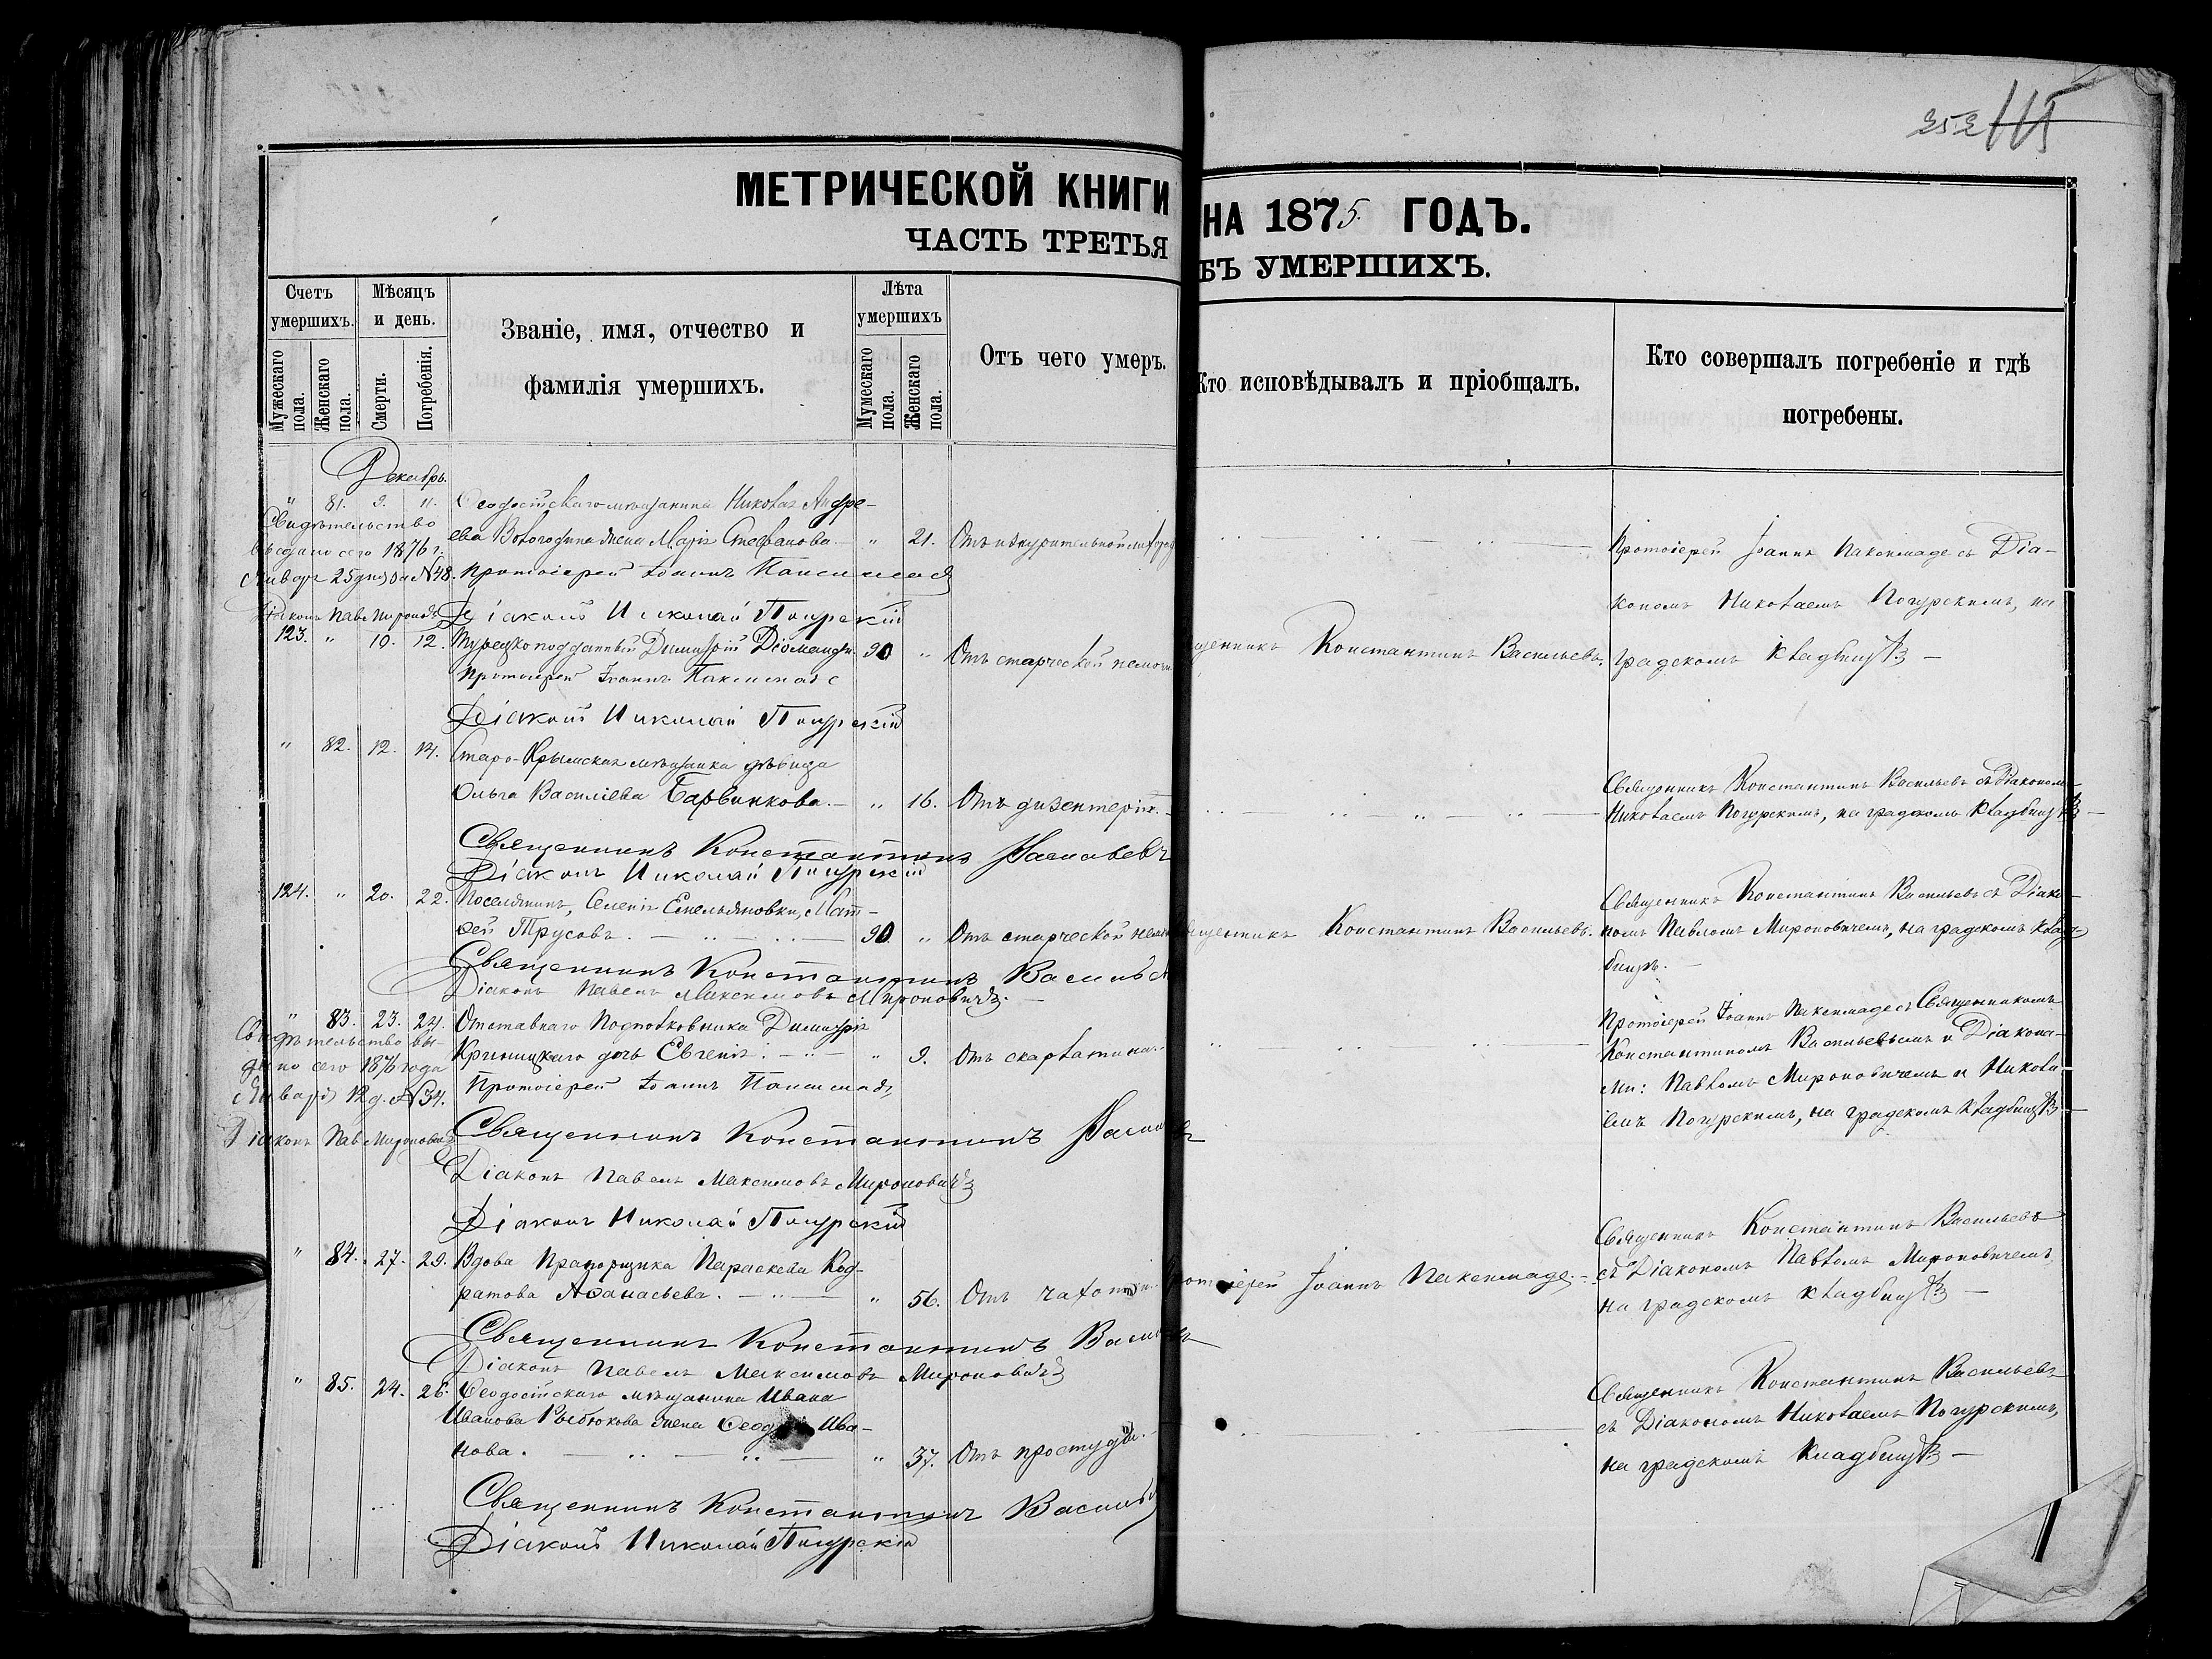 252 115
МЕТРИЧЕСКОЙ КНИГИ НА 1875. ГОДЪ.
ЧАСТЬ ТРЕТЬЯ БЪ УМЕРШИХЪ.
Счетъ умершихъ.
Мужескаго пола.
Женскаго пола.
Мѣсяцъ и день.
Смерти.
Погребенія.
Званіе, имя, отчество и
фамилія умершихъ.
Лѣта умершихъ
Мужескаго пола.
Женскаго пола.
Отъ чего умеръ.
Кто исповѣдывалъ и пріобщалъ.
Кто совершалъ погребеніе и гдѣ
погребены.
Декабрь.
" 81. 9. 11. Ѳеодосійскаго мѣщанина Николая Андре-
ева жена Марія Стефанова. " 21.
Свидѣтельство
выдано сего 1876 г.
Января 25 дня за №48.
Діаконъ Пав. Мироновъ
Протоіерей Іоаннъ Пакенмаде съ Діа-
кономъ Николаемъ Погурскимъ, на
градскомъ кладбищѣ
Протоіерей Іоаннъ
Діаконъ Николай Погурскій
123. " 10. 12. Турецкоподданный Димитрій Діоманди. 90 " Отъ старческой немочи
щенникъ Константинъ Васильевъ.
Протоіерей Іоаннъ Пакенмаде
Діаконъ Николай Погурскій
" 82. 12. 14. Старо-Крымская мѣщанка дѣвица
Ольга Василіева Барвинкова. " 16. Отъ дизентеріи.
Священникъ Константинъ Васильевъ съ Діакономъ
Николаемъ Погурскимъ, на градскомъ кладбищѣ
Священникъ Константинъ Васильевъ
Діаконъ Николай Погурскій
124. " 20. 22. Поселянинъ, Селенія Емельяновки, Мат-
ѳей Трусовъ. 90 " Отъ старческой немочи
щенникъ Константинъ Васильевъ.
Священникъ Константинъ Васильевъ съ Діако-
номъ Павломъ Мироновичемъ, на градскомъ клад-
бищѣ.
Священникъ Константинъ Васильев
Діаконъ Павелъ Максимовъ Мироновичъ.
" 83. 23. 24. Отставнаго Подполковника Димитрія
Криницкаго дочь Евгенія. " 9. Отъ скарлатины.
Свидѣтельство вы-
дано сего 1876 года
Января 12 д. №34.
Діаконъ Пав. Мироновичъ
Протоіерей Іоаннъ Пакенмаде съ Священникомъ
Константиномъ Васильевымъ и Діакона-
ми: Павломъ Мироновичемъ и Никола-
емъ Погурскимъ, на градскомъ кладбищѣ
Протоіерей Іоаннъ
Священникъ Константинъ Васильевъ
Діаконъ Павелъ Максимовъ Мироновичъ
Діаконъ Николай Погурскій
" 84. 27. 29. Вдова Прапорщика Параскева Код-
ратова Аѳанасьева. " 56. Отъ чахотки.
ротоіерей Іоаннъ Пакенмаде.
Священникъ Константинъ Васильевъ
съ Діакономъ Павломъ Мироновичемъ
на градскомъ кладбищѣ
Священникъ Константинъ Васильевъ
Діаконъ Павелъ Максимовъ Мироновичъ
" 85. 24. 26. Ѳеодосійскаго мѣщанина Ивана
Иванова жена Ива-
нова. " 37. Отъ простуды.
Священникъ Константинъ Васильевъ
съ Діакономъ Николаемъ Погурскимъ,
на градскомъ кладбищѣ
Священникъ Константинъ Васильев
Діаконъ Николай Погурскій